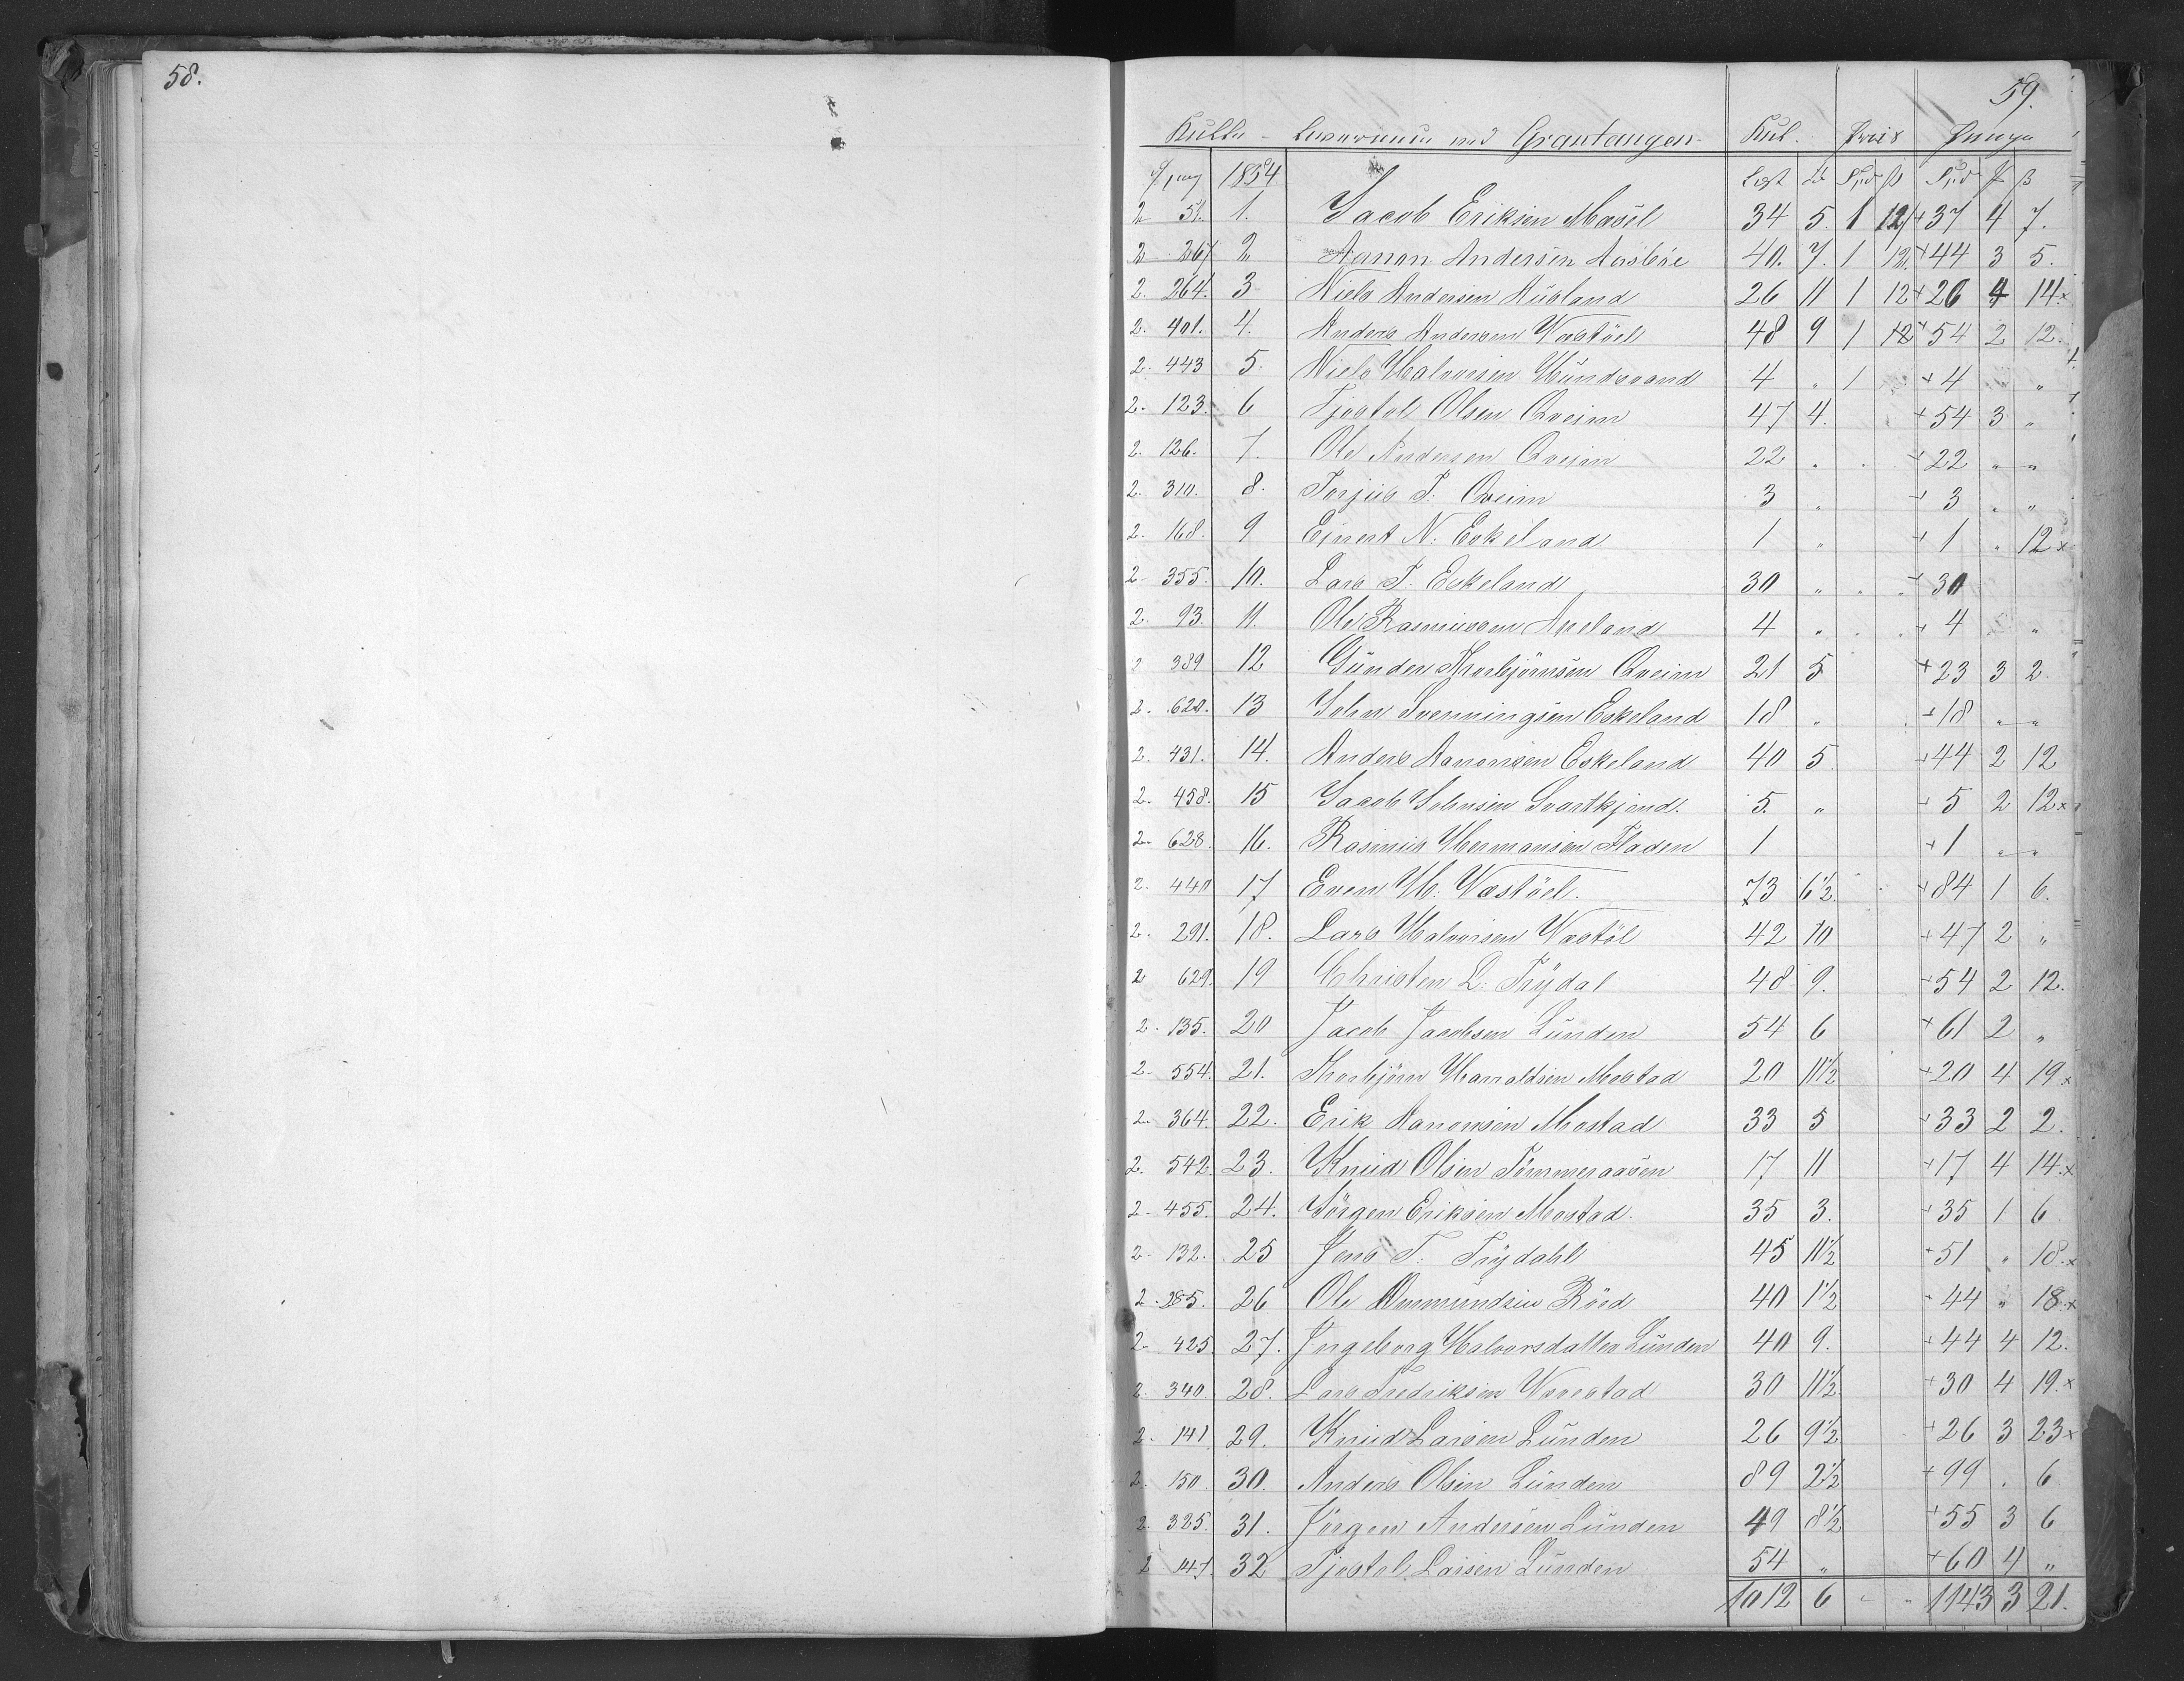 58.
59.
Kulle - Leverancen ved Grantangen - Kul. Priis Penge
1854 Lest Spd ß Spd ß
2 51. 1. Jacob Eriksen Masel 34 5. 1 12 +37 4 7.
2 267 2 Aanon Andersen Aasböe 40. 7. 1 12. +44 3 5.
2. 264. 3 Niels Andersen Ausland 26 11 1 12 +26 4 14.x
2. 401. 4. Anders Andersen Wastöel 48 9 1 12 +54 2 12.
2. 443 5. Niels Halvorsen Hundsvand 4 „ 1 +4 „
2. 123. 6 Tjostol Olsen Qveim 47 4. +54 3 „
2. 126. 7. Ole Andersen Qveim 22 „ +22 „ „
2. 310. 8. Torjus T: Qveim 3 „ +3 „ „
2. 168. 9 Ejnert N: Eskeland 1 „ +1 „ 12 x
2- 355. 10. Lars T. Eskeland 30 „ +30
2. 93. 11. Ole Rasmussen Aneland 4 „ +4 „
2 389 12 Gunder Thorbjörnsen Qveim 21 5 +23 3 2.
2. 620. 13 John Svenningsen Eskeland 18 „ +18 „ „
2. 431. 14. Anders Aanonsen Eskeland 40 5. +44 2 12
2. 458. 15 Jacob Johnsen Svartkjend. 5. „ +5 2 12x
2- 628. 16. Rasmus Hermansen Fladen 1 +1 „ „
2. 440 17 Even H: Wastöel. 73 6½ +84 1 6.
2. 291. 18. Lars Halvorsen Wastöl 42 10 +47 2 „
2 629. 19 Christen L: Trÿdal 48 9. +54 2 12.
2. 135. 20 Jacob Jacobsen Lunden 54 6 +61 2 „
2- 554. 21. Thorbjörn Haraldsen Mostad 20 11½ +20 4 19.x
2. 364. 22. Erik Aanonsen Mostad 33 5 +33 2 2.
2. 542. 23. Knud Olsen Tömmeraasen 17 11 +17 4 14.x
2- 455. 24. Jörgen Eriksen Mostad. 35 3. +35 1 6
2- 132. 25 Jens T: Trydahl 45 11½ +51 „ 18.x
2. 285. 26 Ole Ommundsen Röed 40 1½ 44 „ 18.x
2- 425. 27. Ingeborg Halvorsdatter Lunden 40 9. +44 4 12.
2. 340. 28. Lars Fredriksen Wovestad 30 11½ +30 4 19.x
2. 141 29. Knud Larsen Lunden 26 9½ +26 3 23x
2. 150. 30. Anders Olsen Lunden 89 2½ +99 . 6
2. 325. 31. Jörgen Andersen Lunden 49 8½ +55 3 6
2 147. 32 Tjostol Larsen Lunden 54 „ +60 4 „
1012 6 „ „ 1143 3 21.